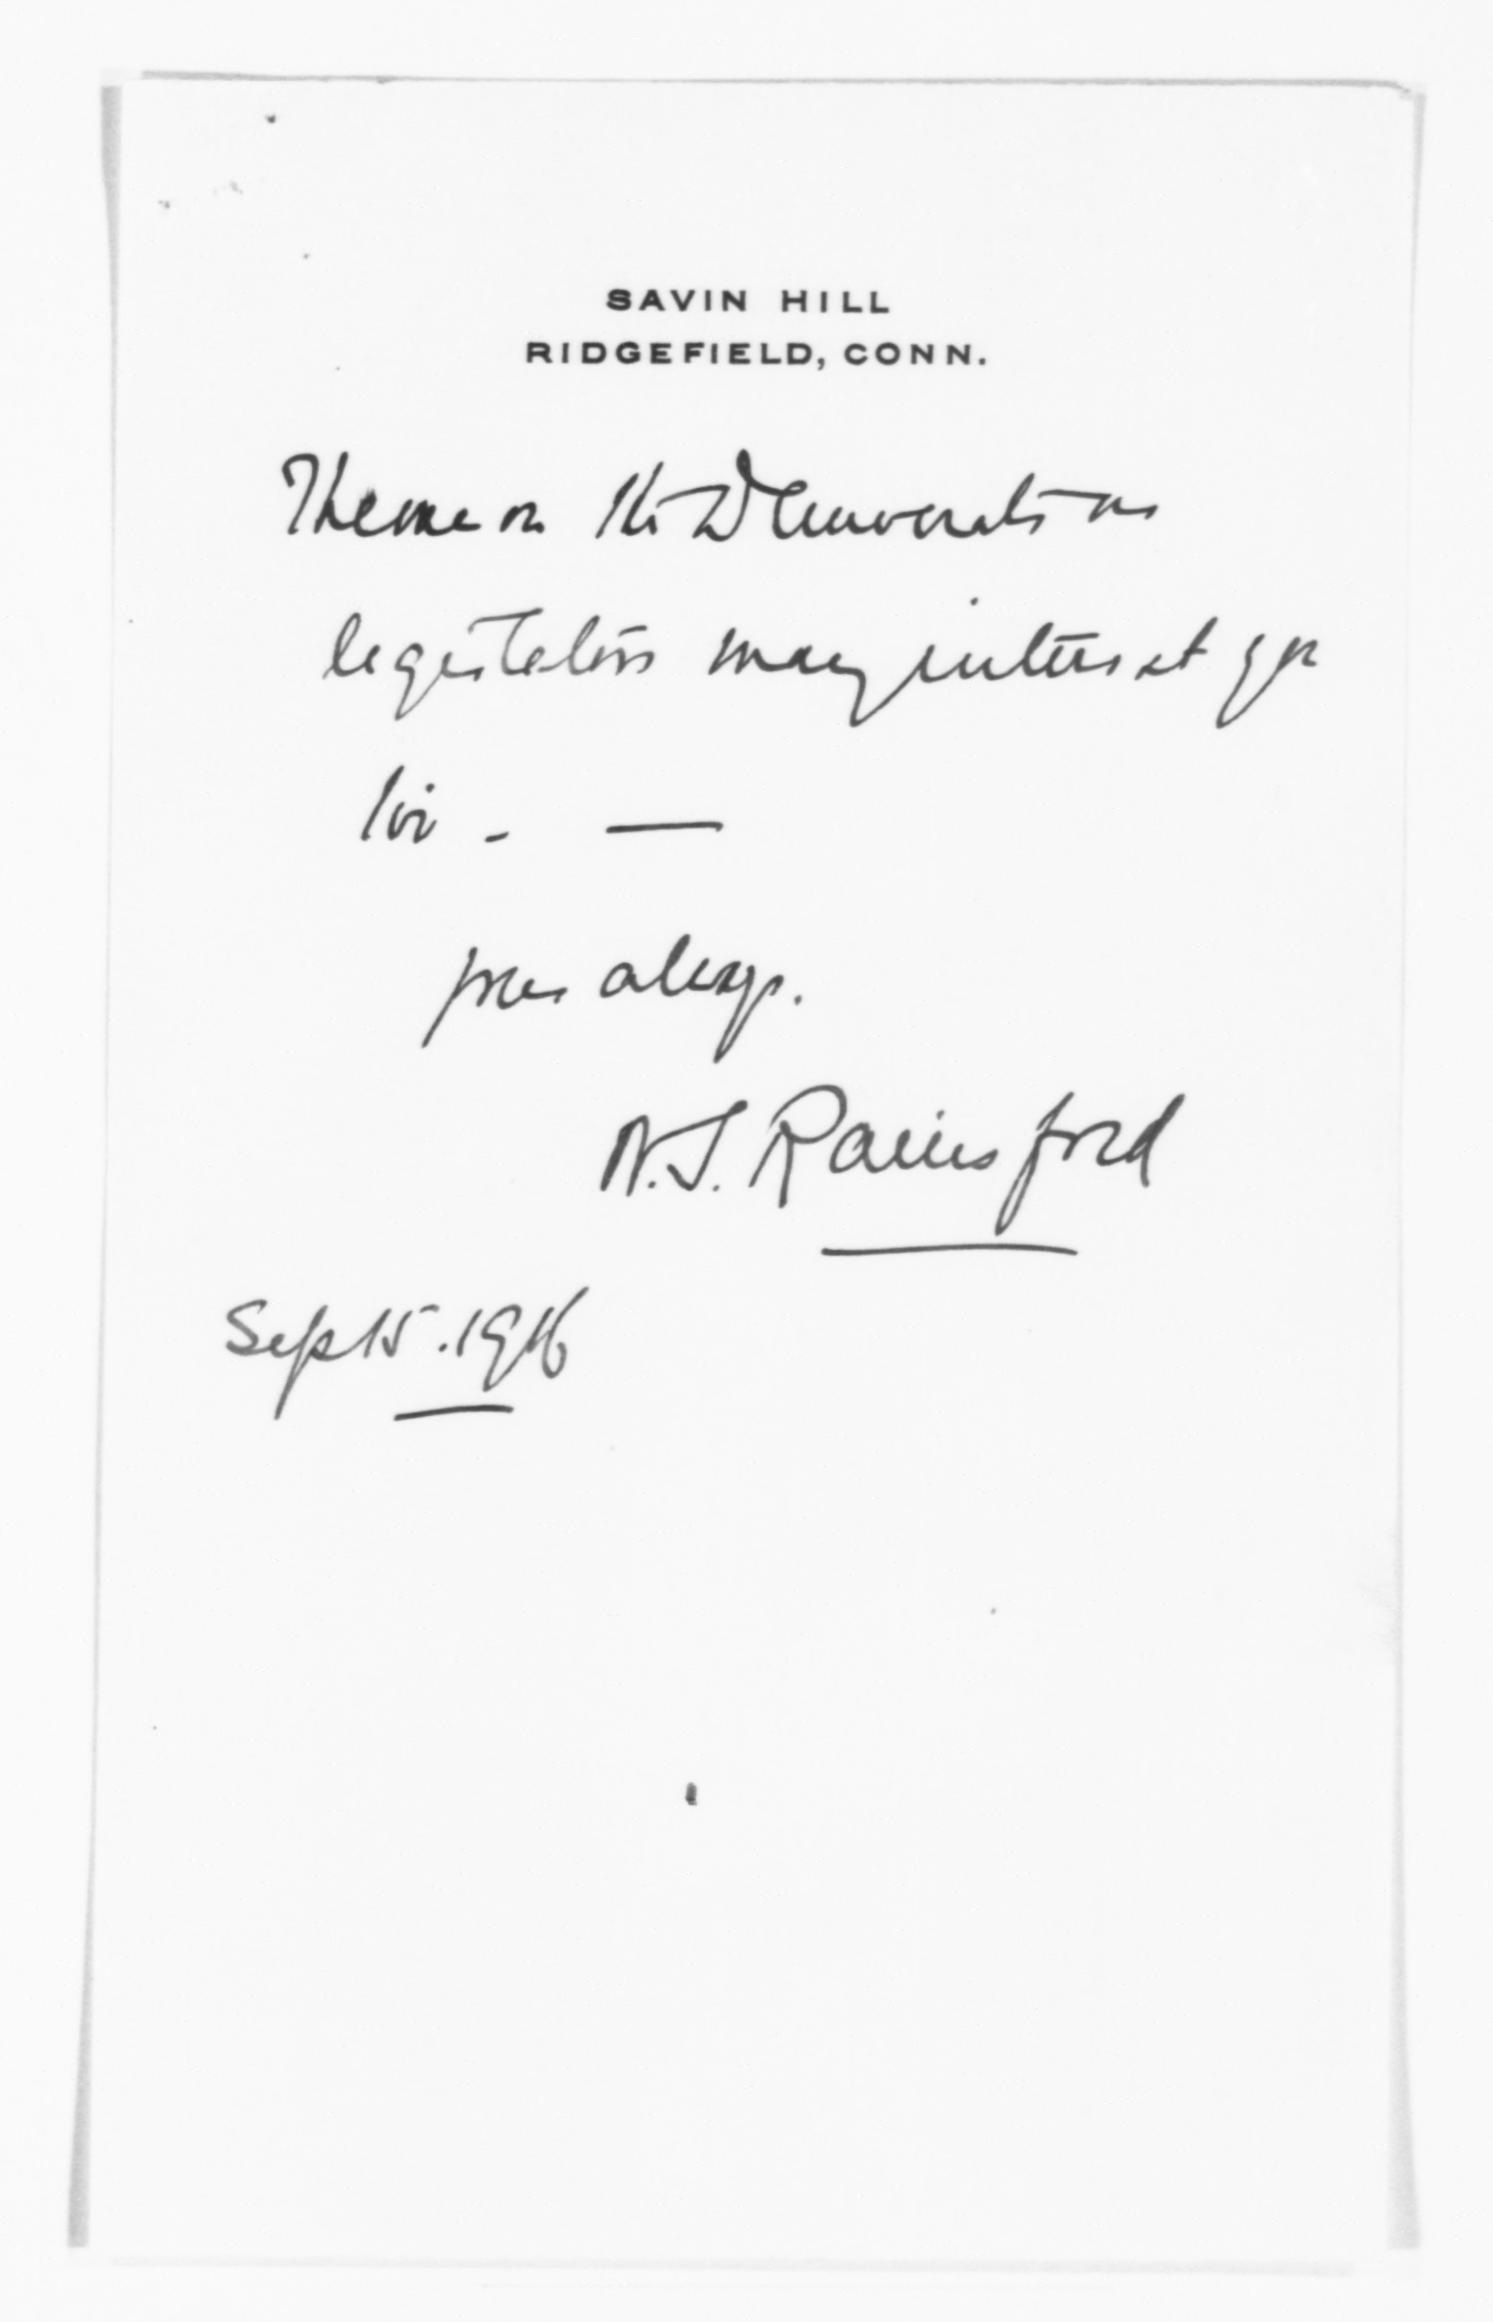 SAVIN HILL
RIDGEFIELD, CONN.
Theme on the Democrats as
legislators may interest you
too. —
yours always.
W.S. Rainsford
Sept 15. 1916